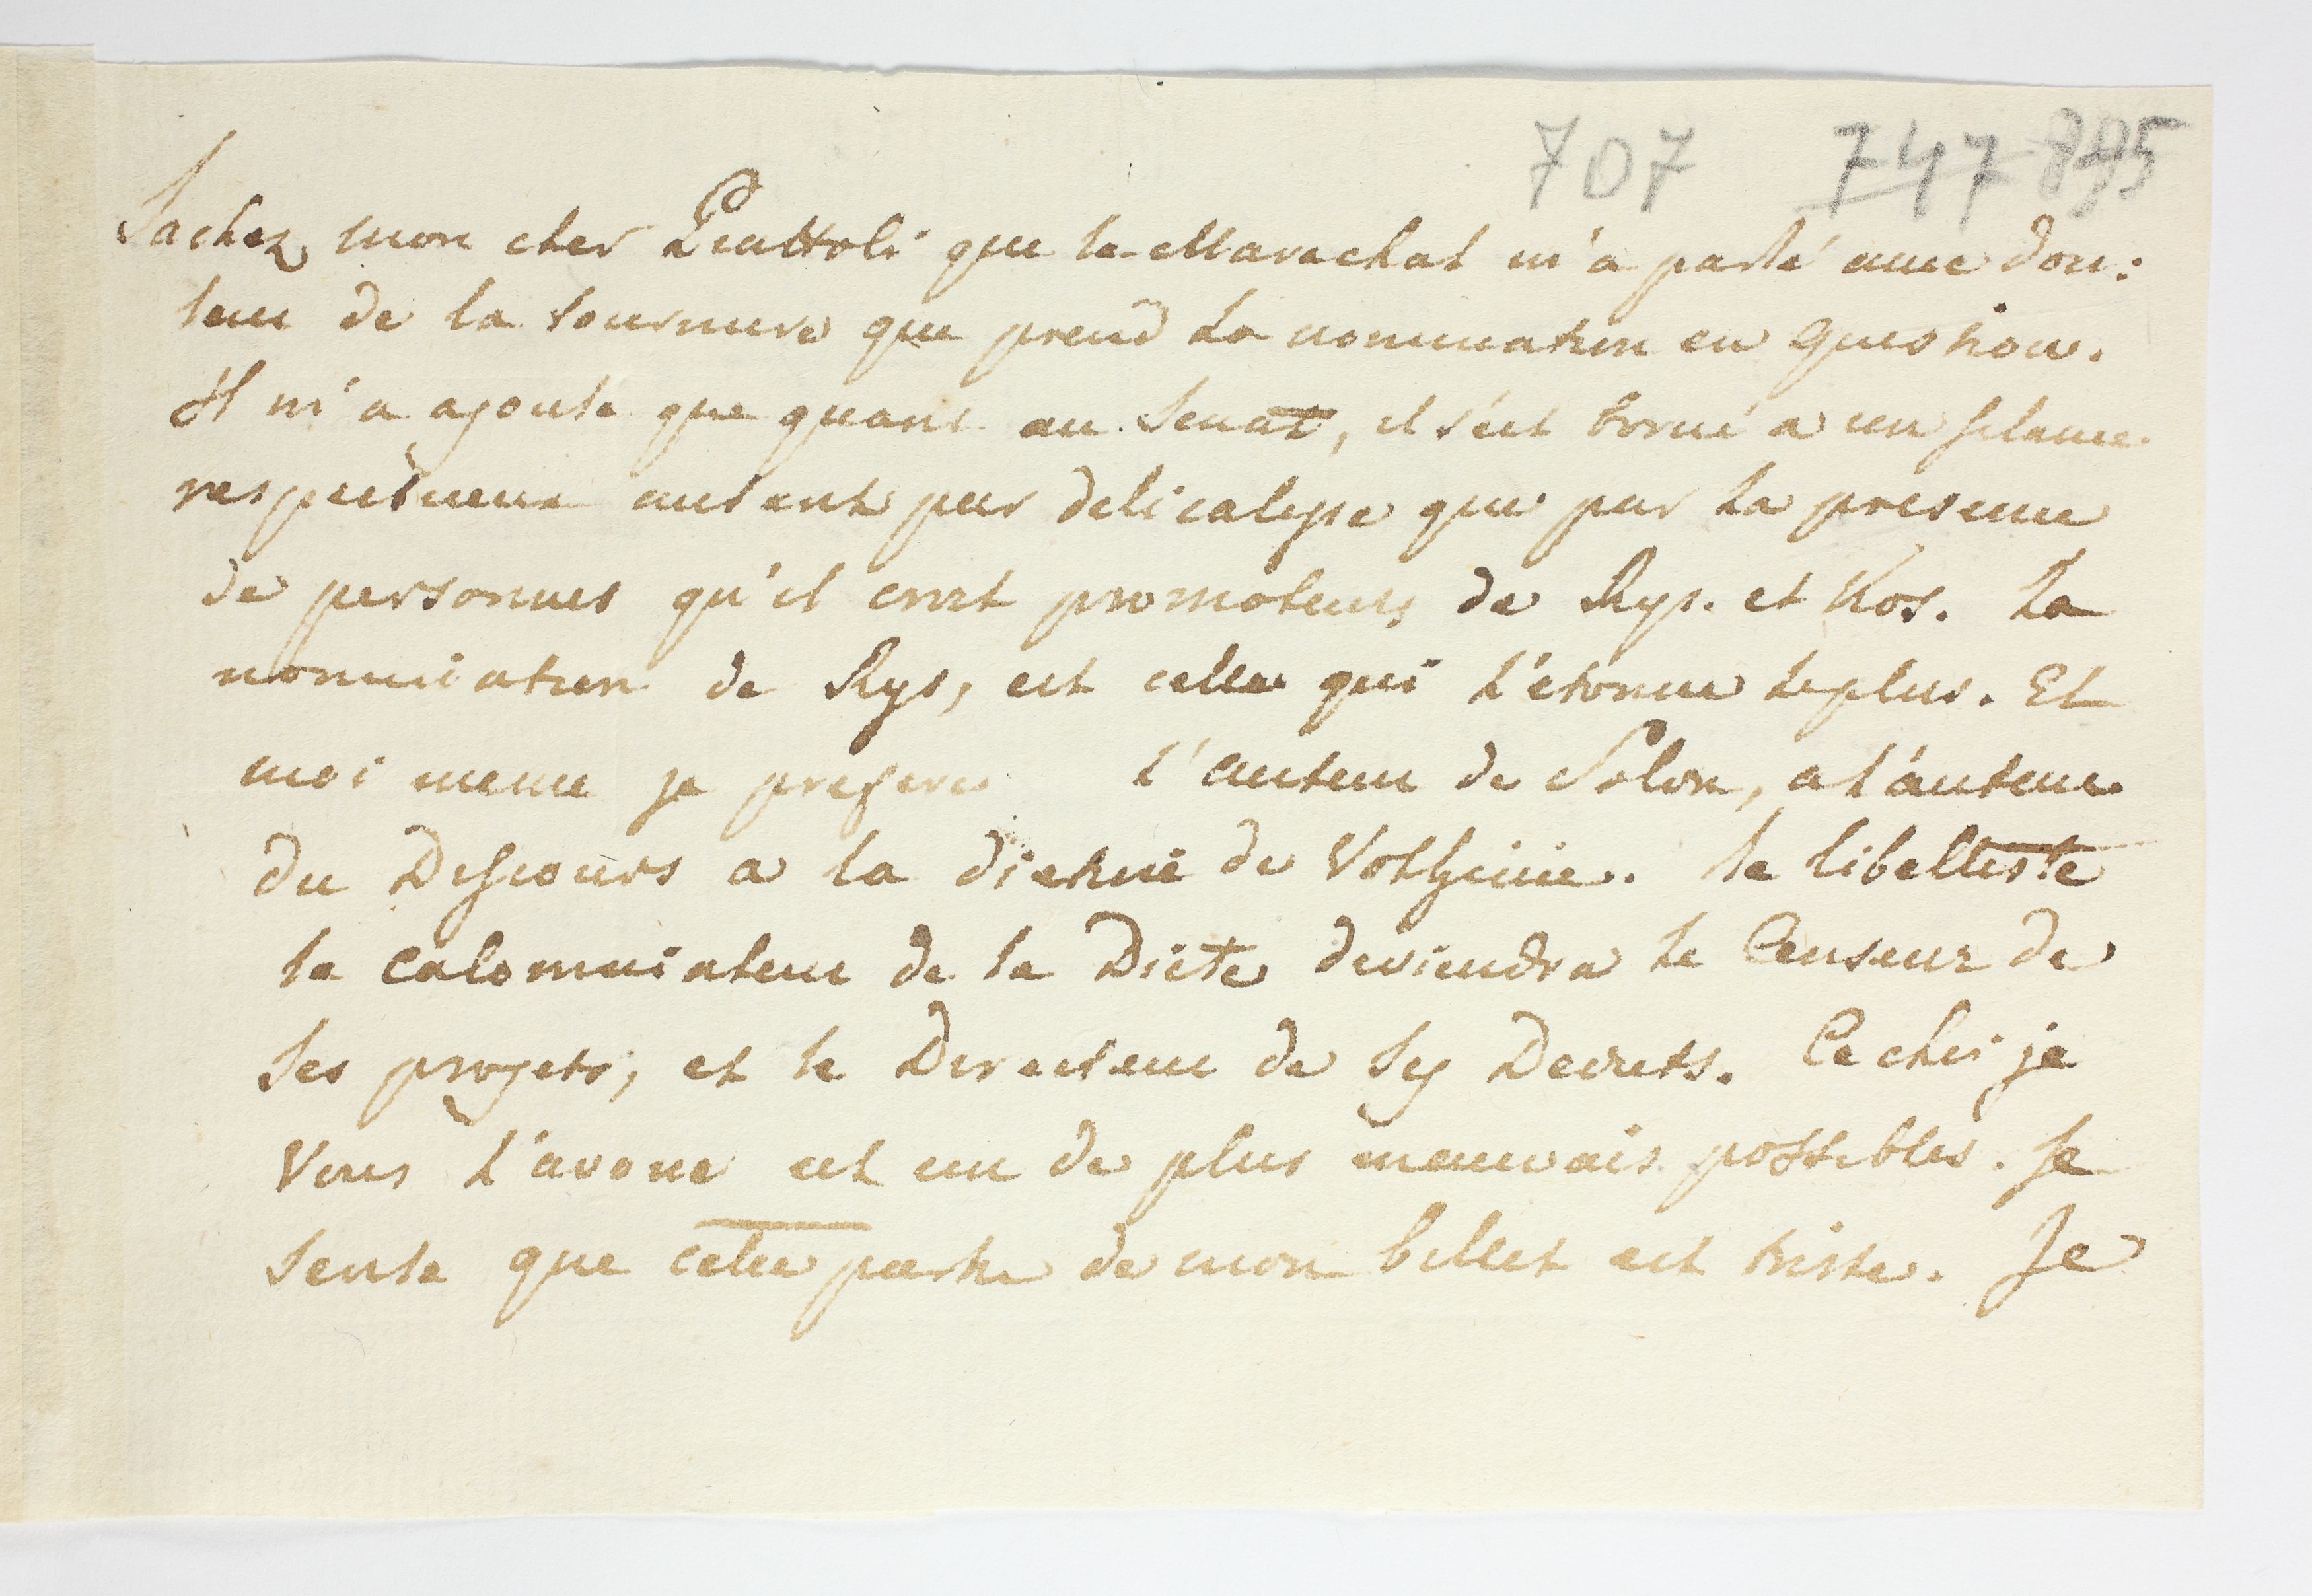 707 747 895
Sachez mon cher Piattoli que le Marechal m'a parlé avec dou:
leur de la tournure que prend la nomination en question.
Il m'a ajouté que quant au Senat, il s'est borné a un silence
respectueux autant par delicatesse que par la presence
de personnes qu'il croit promoteurs de Rys. et Kos. La
nomination de Rys, est celle qui l'étonne le plus. Et
moi meme je prefere l'auteur de Solon, a l'auteur
du Discours a la dietine de Volhjnie. Le libelliste
le calomniateur de la Diete deviendra le Censeur de
ses projets, et le Directeur de ses Decrets. Ce choi je
Vous l'avoue est un de plus mauvais possibles. Je
sente que cette partie de mon billet est triste. Je